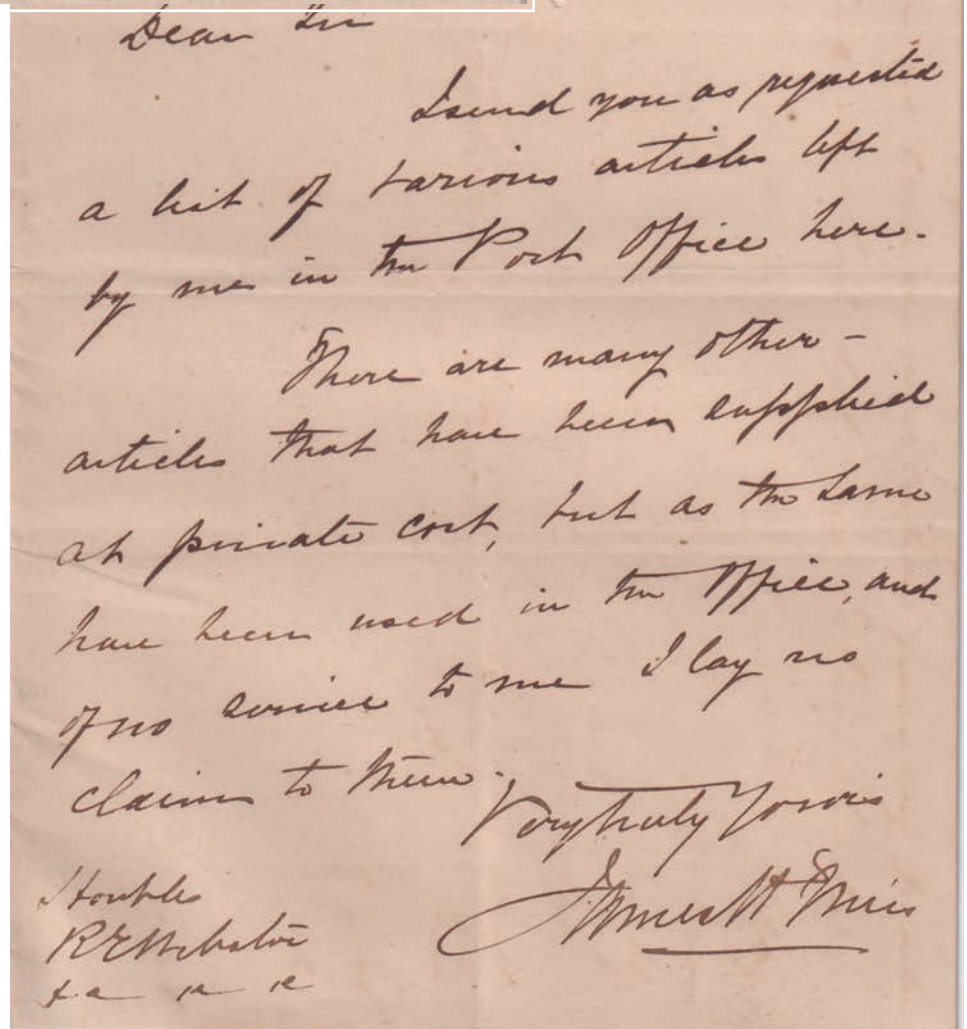 Dear Sir
I send you as requested
a list of various articles left
by me in the Post Office here.
There are many other -
articles that have been supplied
at private cost, but as the same
have been used in the Office, and
of no service to me I lay no
claim to them.
Very truly Yours
James H
Honble
R E Webster